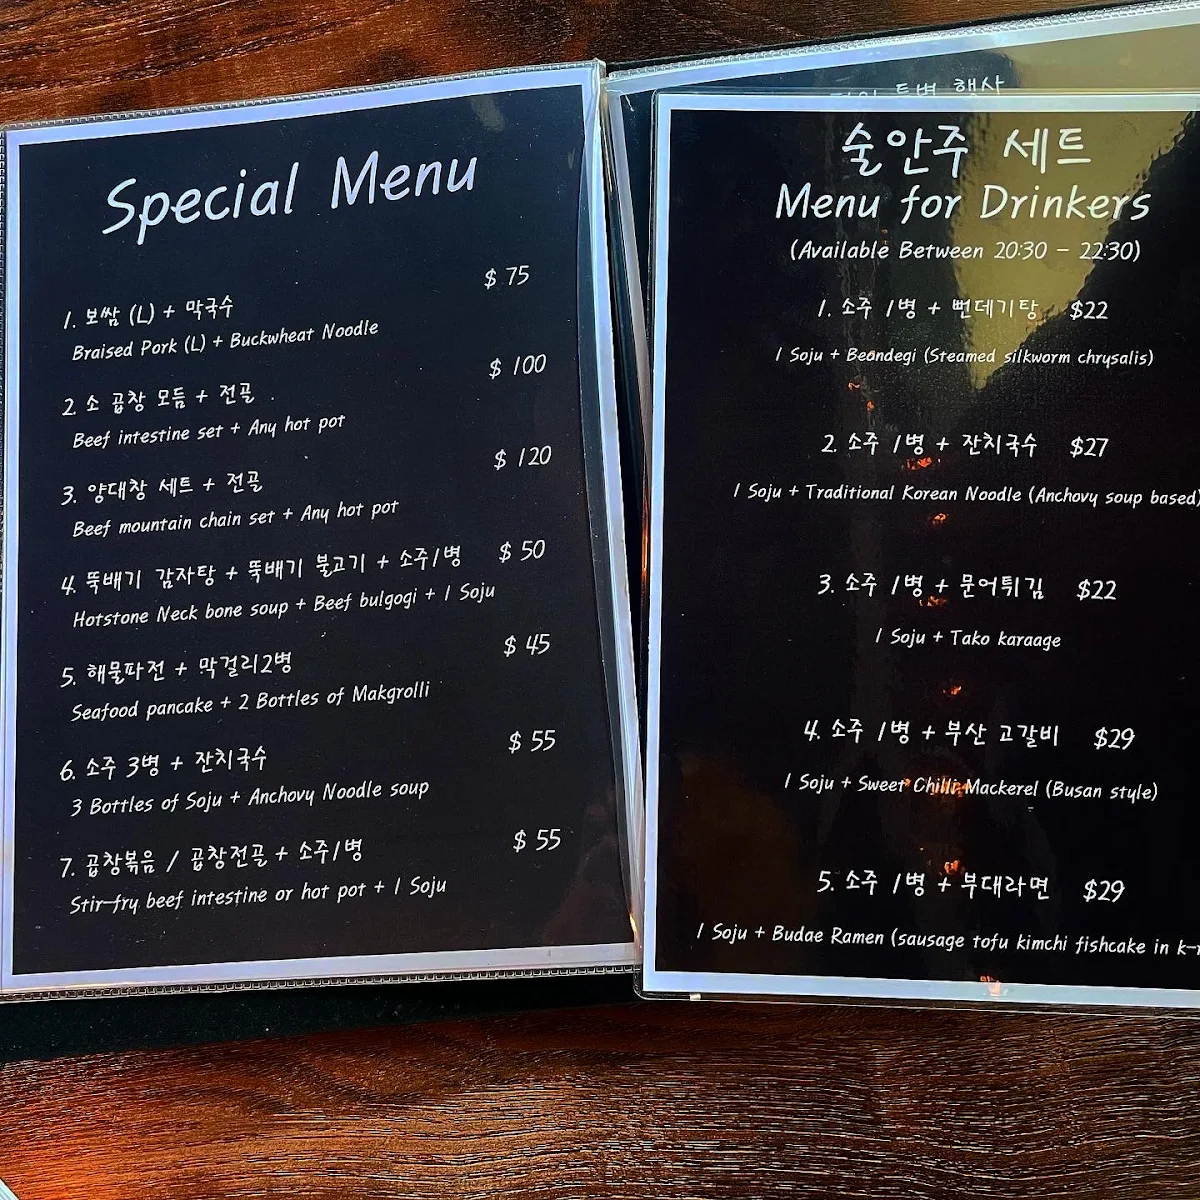 Special Menu
$ 75
1. 보쌈 (L) + 막국수
Braised Pork (L) + Buckwheat Noodle
$ 100
2. 소 곱창 모듬 + 전골
Beef intestine set + Any hot pot
$ 120
3. 양대창 세트 + 전골
Beef mountain chain set + Any hot pot
4. 뚝배기 감자탕 + 뚝배기 불고기 + 소주1병 $ 50
Hotstone Neck bone soup + Beef bulgogi + 1 Soju
$ 45
5. 해물파전 + 막걸리2병
Seafood pancake + 2 Bottles of Makgrolli
$ 55
6. 소주 3병 + 잔치국수
3 Bottles of Soju + Anchovy Noodle soup
$ 55
7. 곱창볶음 / 곱창전골 + 소주1병
Stir-fry beef intestine or hot pot + 1 Soju
특별 행사
술안주 세트
Menu for Drinkers
(Available Between 20:30 - 22:30)
1. 소주 1병 + 뻔데기탕 $22
1 Soju + Beondegi (Steamed silkworm chrysalis)
2. 소주 1병 + 잔치국수 $27
1 Soju + Traditional Korean Noodle (Anchovy soup based)
3. 소주 1병 + 문어튀김 $22
1 Soju + Tako karaage
4. 소주 1병 + 부산 고갈비 $29
1 Soju + Sweet Chilli Mackerel (Busan style)
5. 소주 1병 + 부대라면 $29
1 Soju + Budae Ramen (sausage tofu kimchi fishcake in